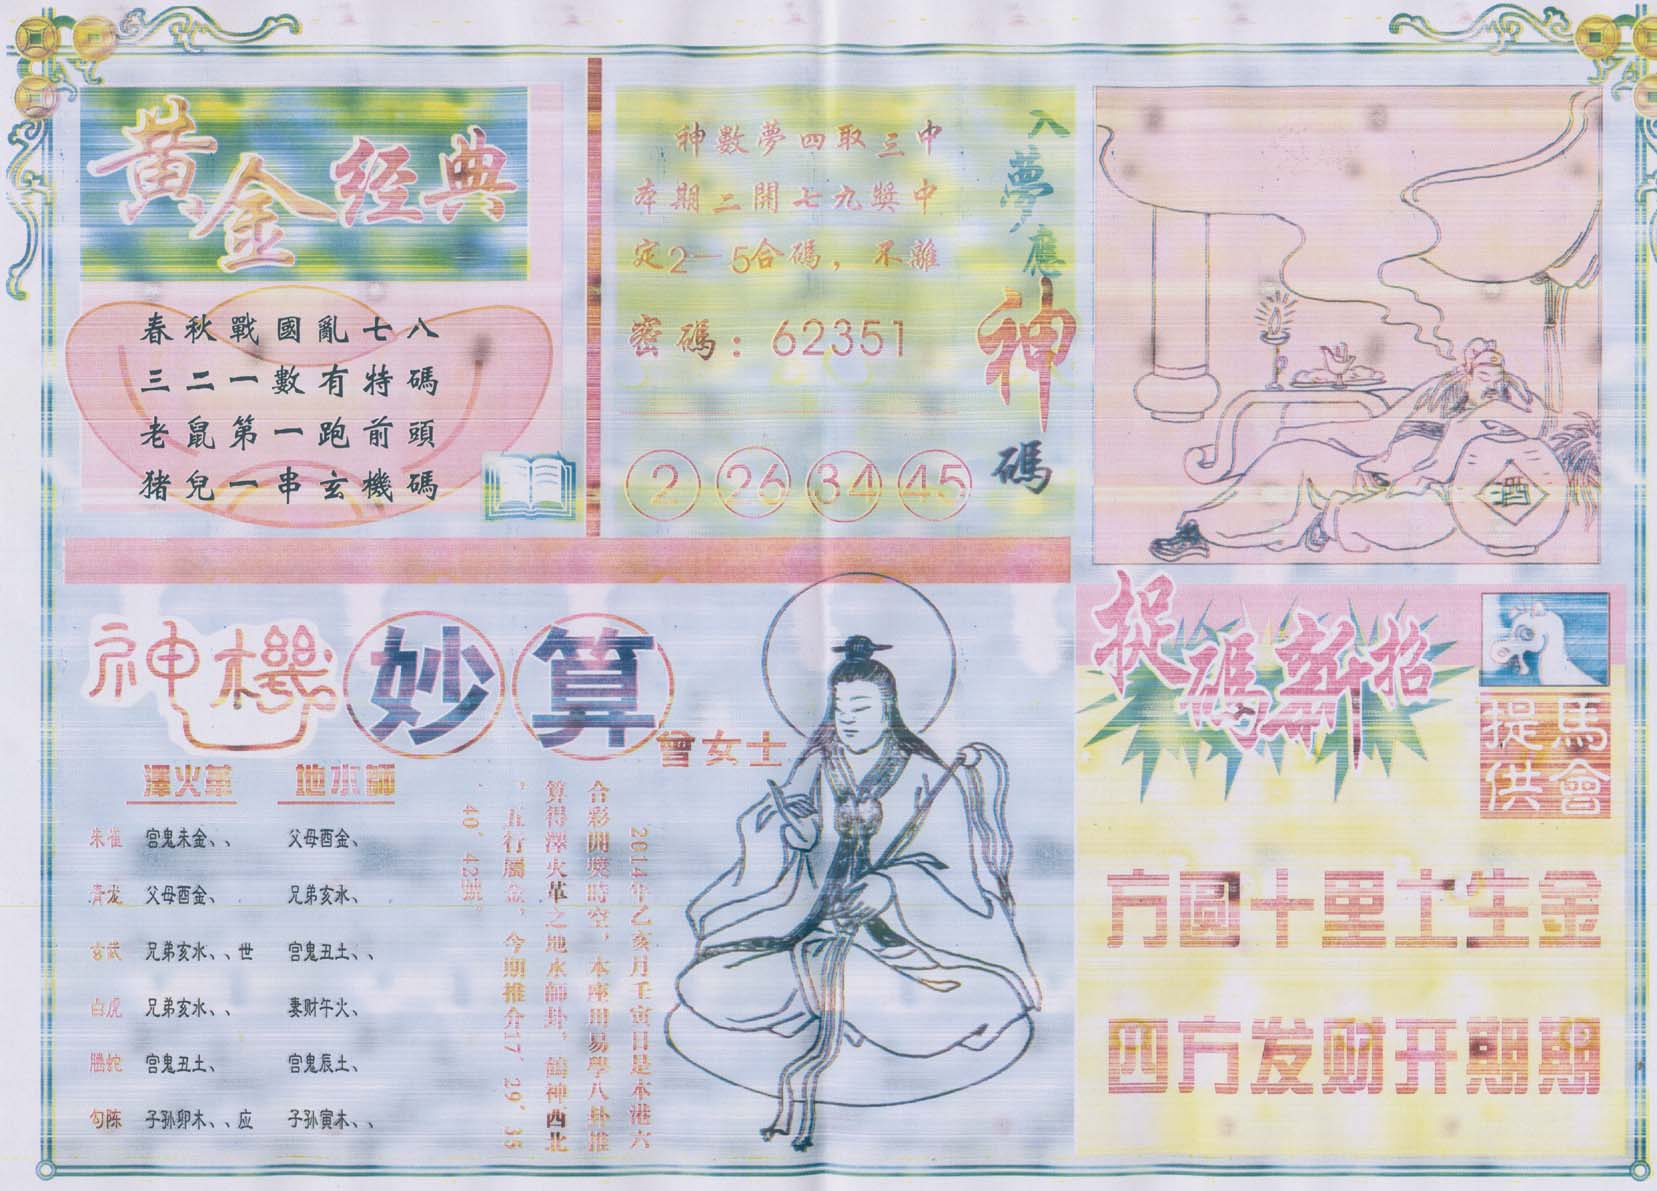 黄金经典
春秋戰國亂七八
三二一數有特碼
老鼠第一跑前頭
猪兒一串玄機碼
入夢應神碼
神數夢四取三中
本期二開七九獎中
定2一5合碼，不離
密碼：62351
2 26 34 45
酒
神機妙算
曾女士
澤火革 地水師
朱雀 官鬼未金、、 父母酉金、
青龙 父母酉金、 兄弟亥水、
玄武 兄弟亥水、、世 官鬼丑土、、
白虎 兄弟亥水、、 妻财午火、
騰蛇 官鬼丑土、 官鬼辰土、
勾陈 子孙卯木、、应 子孙寅木、、
2014年乙亥月壬寅日是本港六
合彩開獎時空，本座用易學八卦推
算得澤火革之地水師卦，鶴神西北
，五行屬金，今期推介17、29、35
、40、42號。
捉碼新招
馬會
提供
方圆十里土生金
四方发财开期期